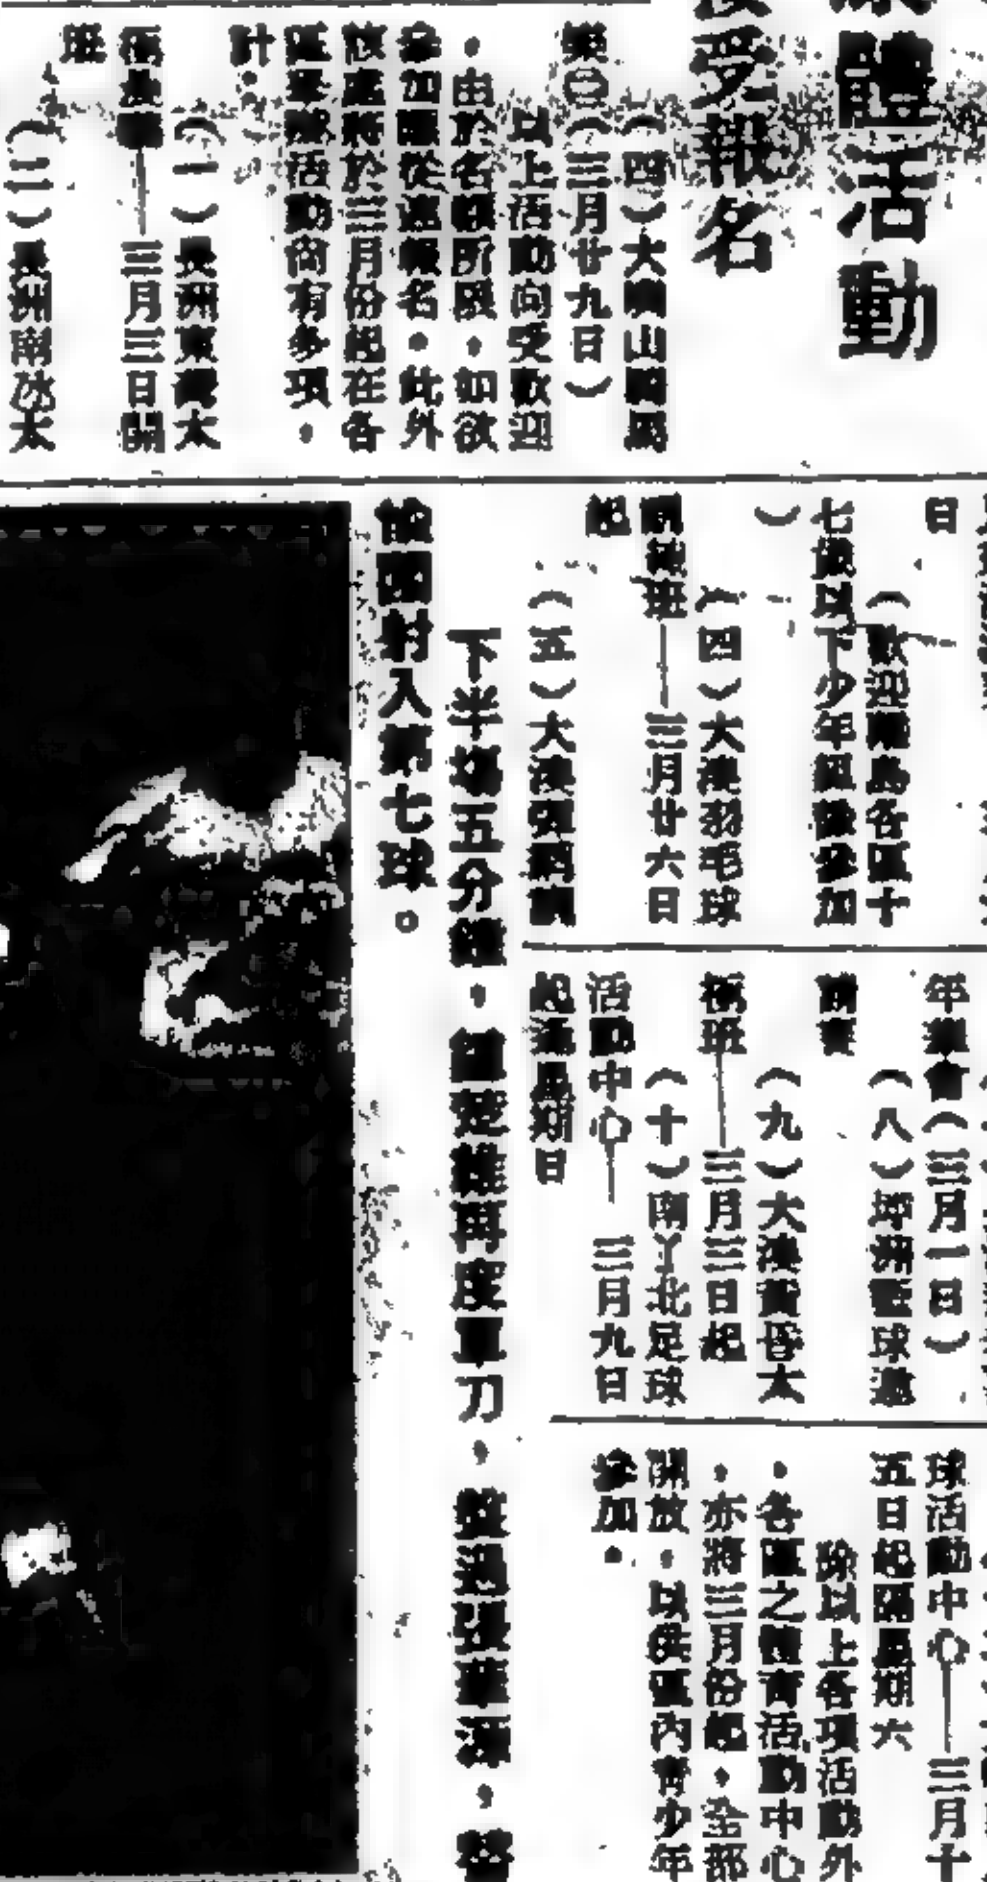 體活動
受報名
（四）大嶼山騎馬
樂◯（三月廿九日）
以上活動向受歡迎
，由於名額所限，如欲
參加請從速報名。此外
該處將於三月份起在各
區舉辦活動尚有多項，
計：
（一）長洲東灣太
極拳班——三月三日開
班
（二）長洲南氹太
日
（歡迎離島各區十
七歲以下少年組隊參加
）
（四）大澳羽毛球
訓練班——三月廿六日
起
（五）大澳彈網訓
年聚會（三月一日）
（八）坪洲籃球邀
請賽
（九）大澳黃昏太
極班——三月三日起
（十）南丫北足球
活動中心——三月九日
起逢星期日
球活動中心——三月十
五日起隔星期六
除以上各項活動外
，各區之體育活動中心
，亦將三月份起，全部
開放，以供區內青少年
參加。
下半場五分鐘，鍾楚維再度單刀，盤過張華源，
射入第七球。